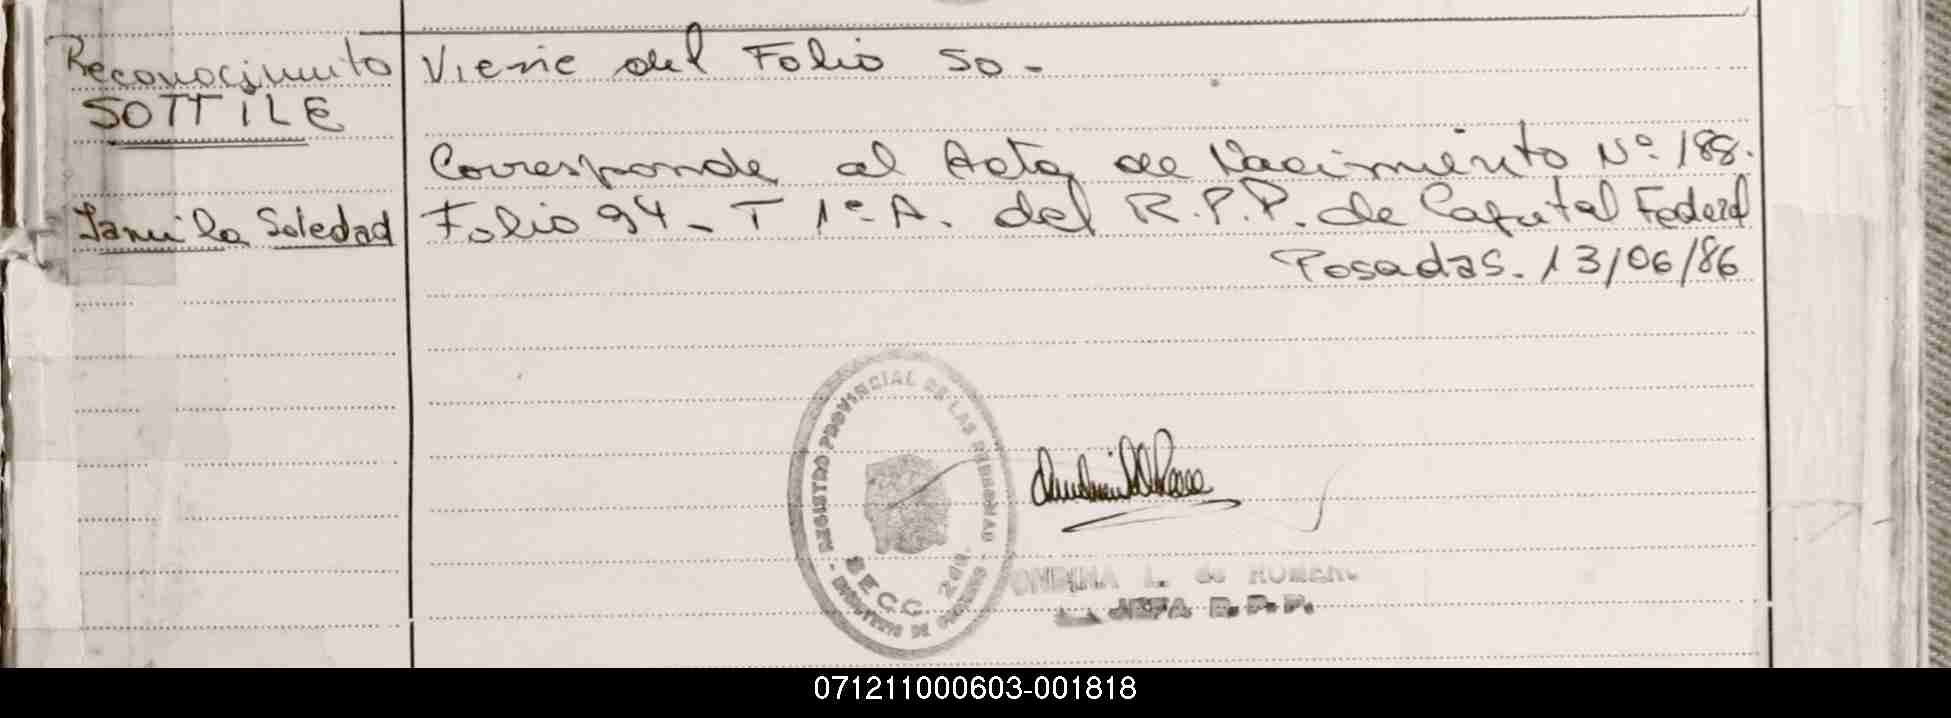 Reconocimiento
SOTTILE
Yamila Soledad
Viene del Folio 50.-
Corresponde al Acta de Nacimiento Nº 188.
Folio 94 - T 1º A. del R.P.P. de Capital Federal
Posadas. 13/06/86
REGISTRO PROVINCIAL DE LAS PERSONAS
SECC. 2da.
MINISTERIO DE GOBIERNO
L. de ROMERO
JEFA R.P.P.
071211000603-001818